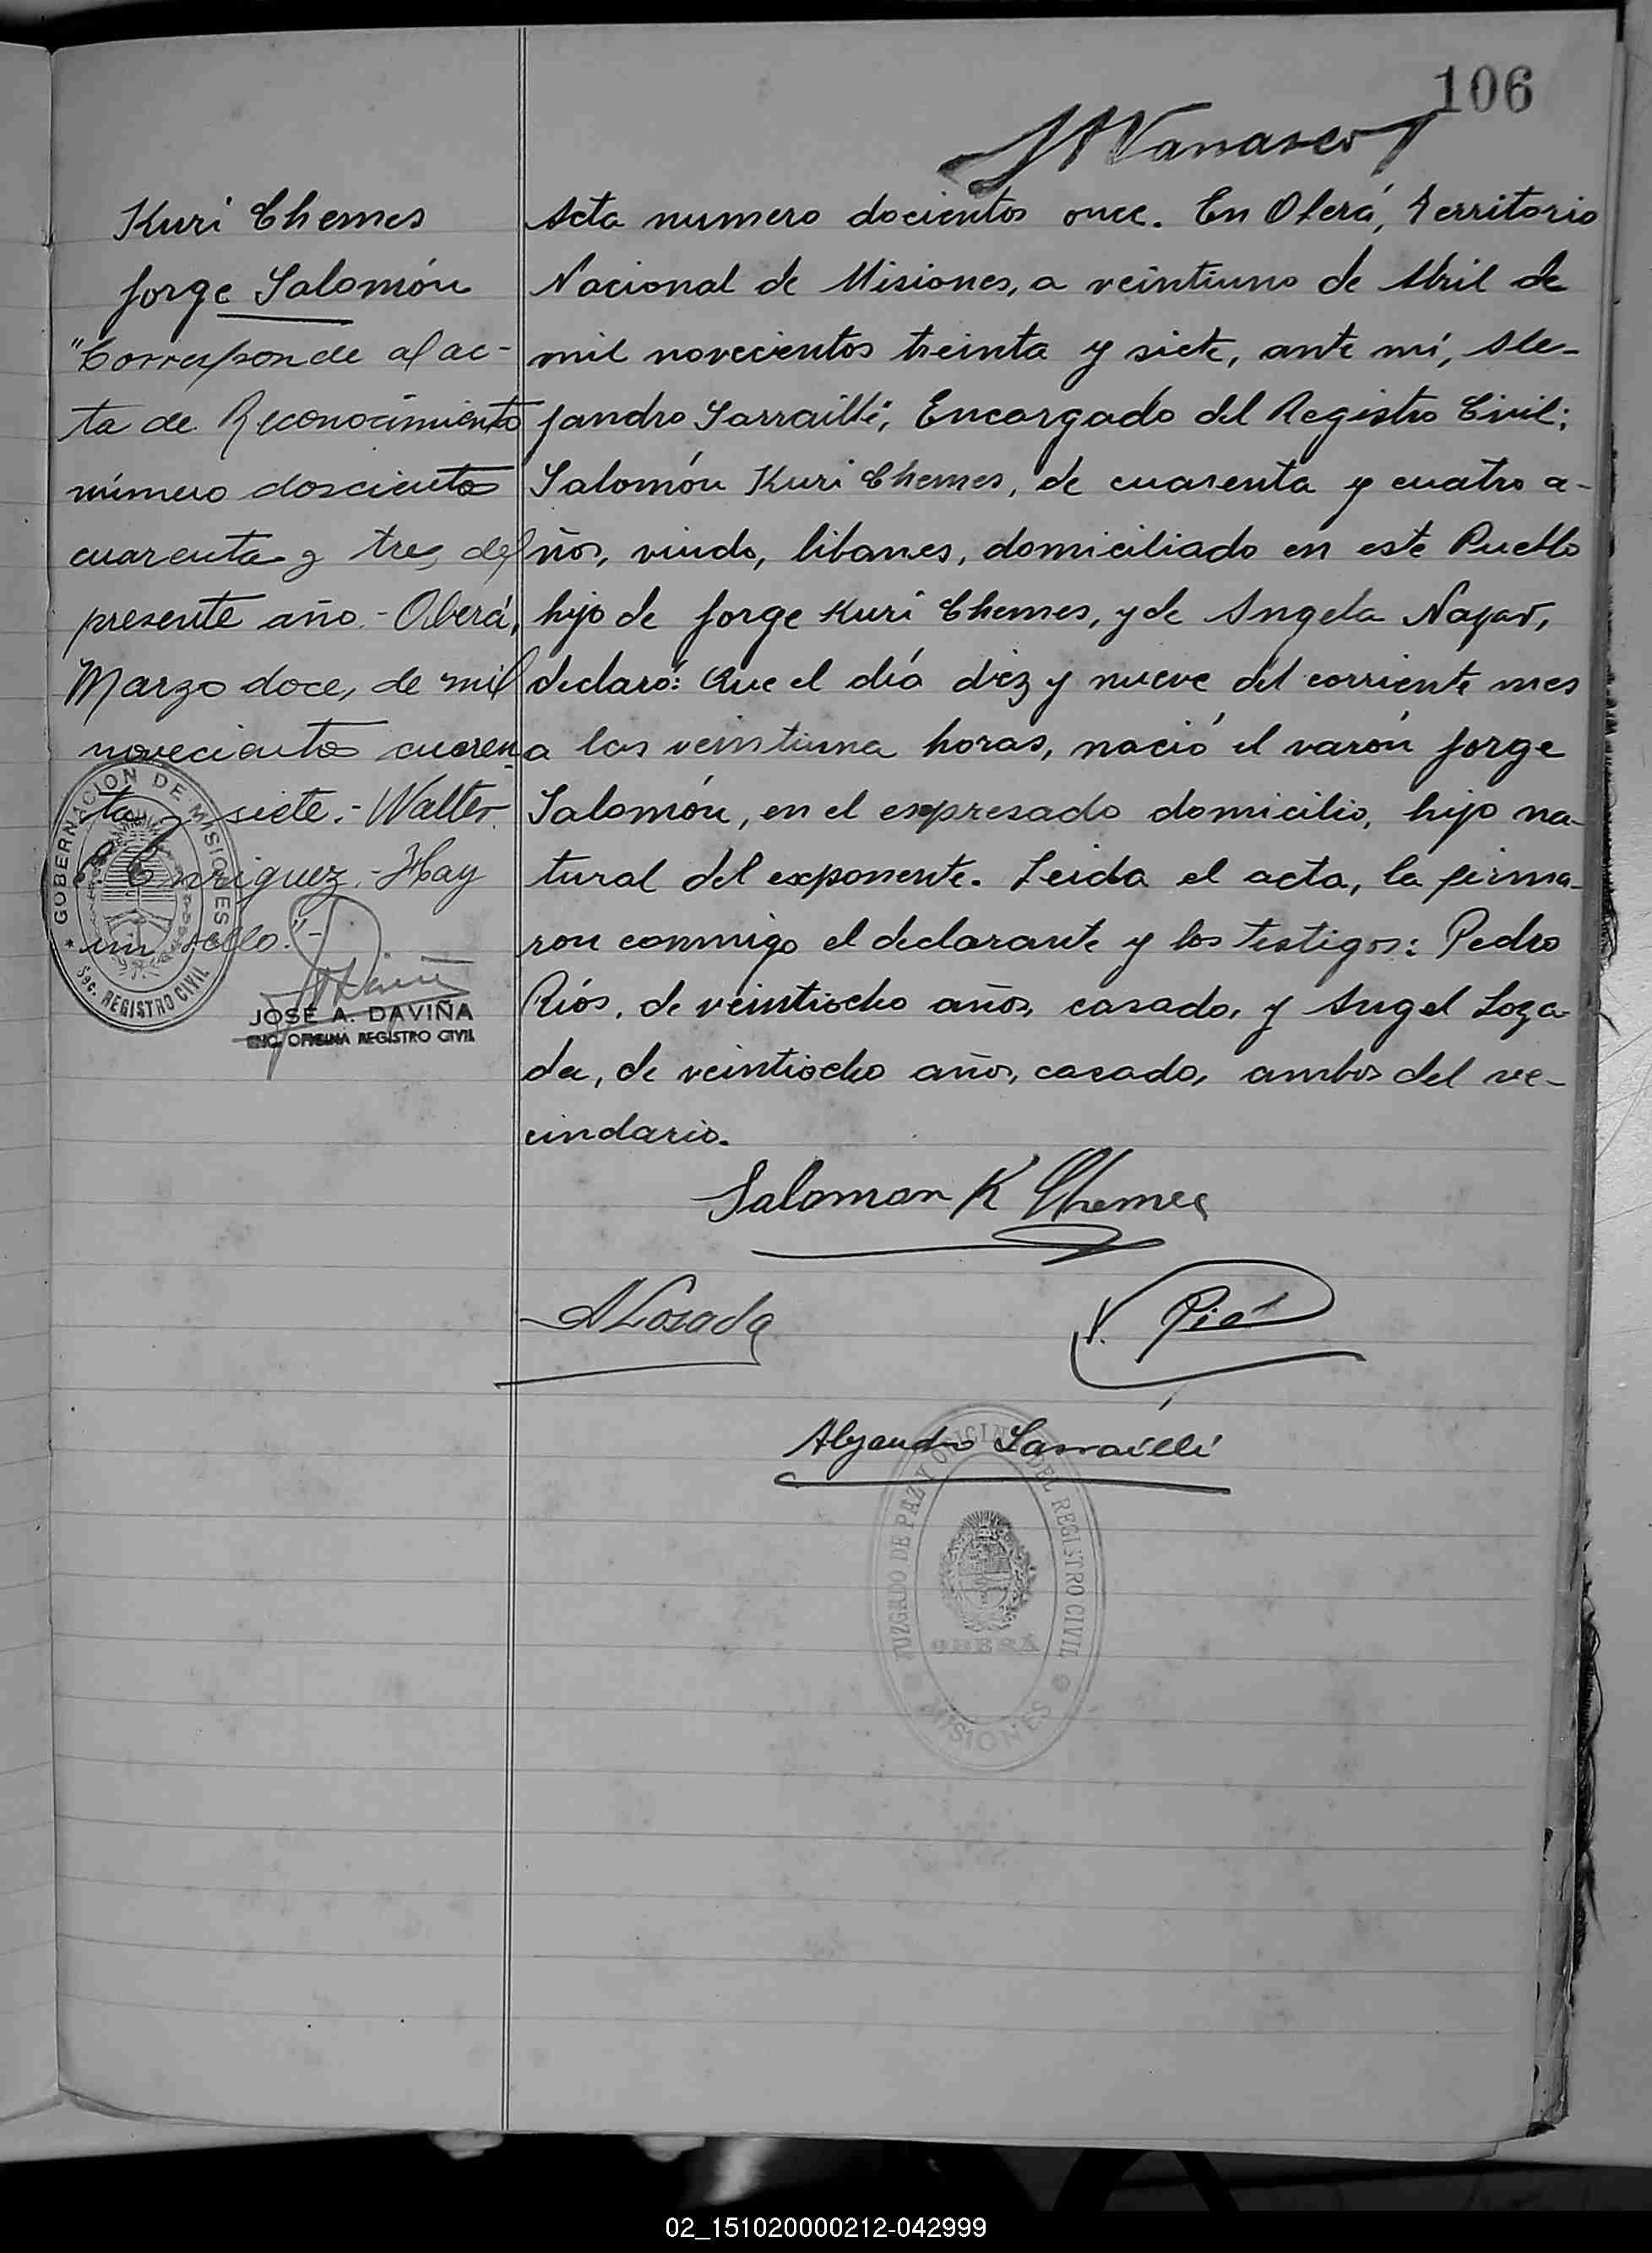 106
Kuri Chemes
Jorge Salomón
"Corresponde al ac-
ta de Reconocimiento
número doscientos
cuarenta y tres, del
presente año.- Oberá,
Marzo doce, de mil
novecientos cuaren-
ta y siete.- Walter
Enriquez.- Hay
un sello."-
GOBERNACION DE MISIONES
Sec. REGISTRO CIVIL
JOSE A. DAVIÑA
ENC. OFICINA REGISTRO CIVIL
Acta numero docientos once. En Oberá, Territorio
Nacional de Misiones, a veintiuno de Abril de
mil novecientos treinta y siete, ante mí, Ale-
jandro Sarrailli, Encargado del Registro Civil:
Salomón Kuri Chemes, de cuarenta y cuatro a-
ños, viudo, libanes, domiciliado en este Pueblo
hijo de Jorge Kuri Chemes, y de Angela Nayar,
declaró: Que el día diez y nueve del corriente mes
a las veintiuna horas, nació el varón Jorge
Salomón, en el expresado domicilio, hijo na-
tural del exponente. Leida el acta, la firma-
ron conmigo el declarante y los testigos: Pedro
Ríos, de veintiocho años, casado, y Angel Loza-
da, de veintiocho años, casado, ambos del ve-
cindario.
Salomon K Chemes
A Losada
Alejandro Sarrailli
JUZGADO DE PAZ Y OFICINA DEL REGISTRO CIVIL
OBERÁ
MISIONES
02_151020000212-042999